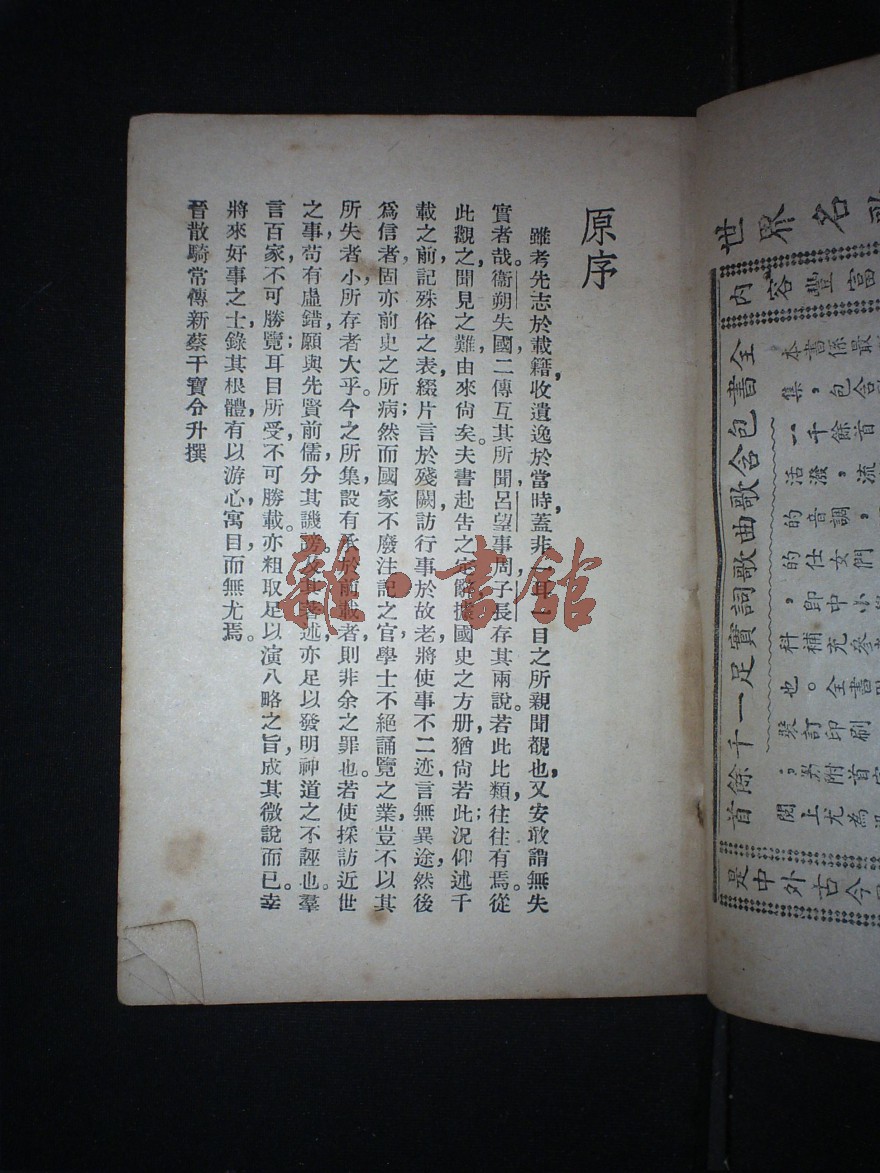 原序
雖考先志於載籍，收遺逸於當時，蓋非一耳一目之所親聞覩也，又安敢謂無失
實者哉。衞朔失國，二傳互其所聞，呂望事周，子長存其兩說。若此比類，往往有焉。從
此觀之，聞見之難，由來尙矣。夫書赴吿之定辭，據國史之方册，猶尙若此；況仰述千
載之前，記殊俗之表，綴片言於殘闕，訪行事於故老，將使事不二迹，言無異途，然後
爲信者，固亦前史之所病；然而國家不廢注記之官，學士不絕誦覽之業，豈不以其
所失者小，所存者大乎。今之所集，設有承於前載者，則非余之罪也。若使採訪近世
之事，苟有虛錯，願與先賢前儒分其譏謗。及其著述，亦足以發明神道之不誣也。羣
言百家，不可勝覽；耳目所受，不可勝載。亦粗取足以演八略之旨，成其微說而已。幸
將來好事之士，錄其根體，有以游心寓目而無尤焉。
晉散騎常傳新蔡干寶令升撰
世界名
內容豐富
全書包含歌曲歌詞實足一千餘首
本書係最
集，包含
一千餘首
活潑，流
的音調，
的仕女們
，即中小
科補充參
也。全書
裝訂印刷
，另附首
閱上尤為
是中外古今
雜·書館